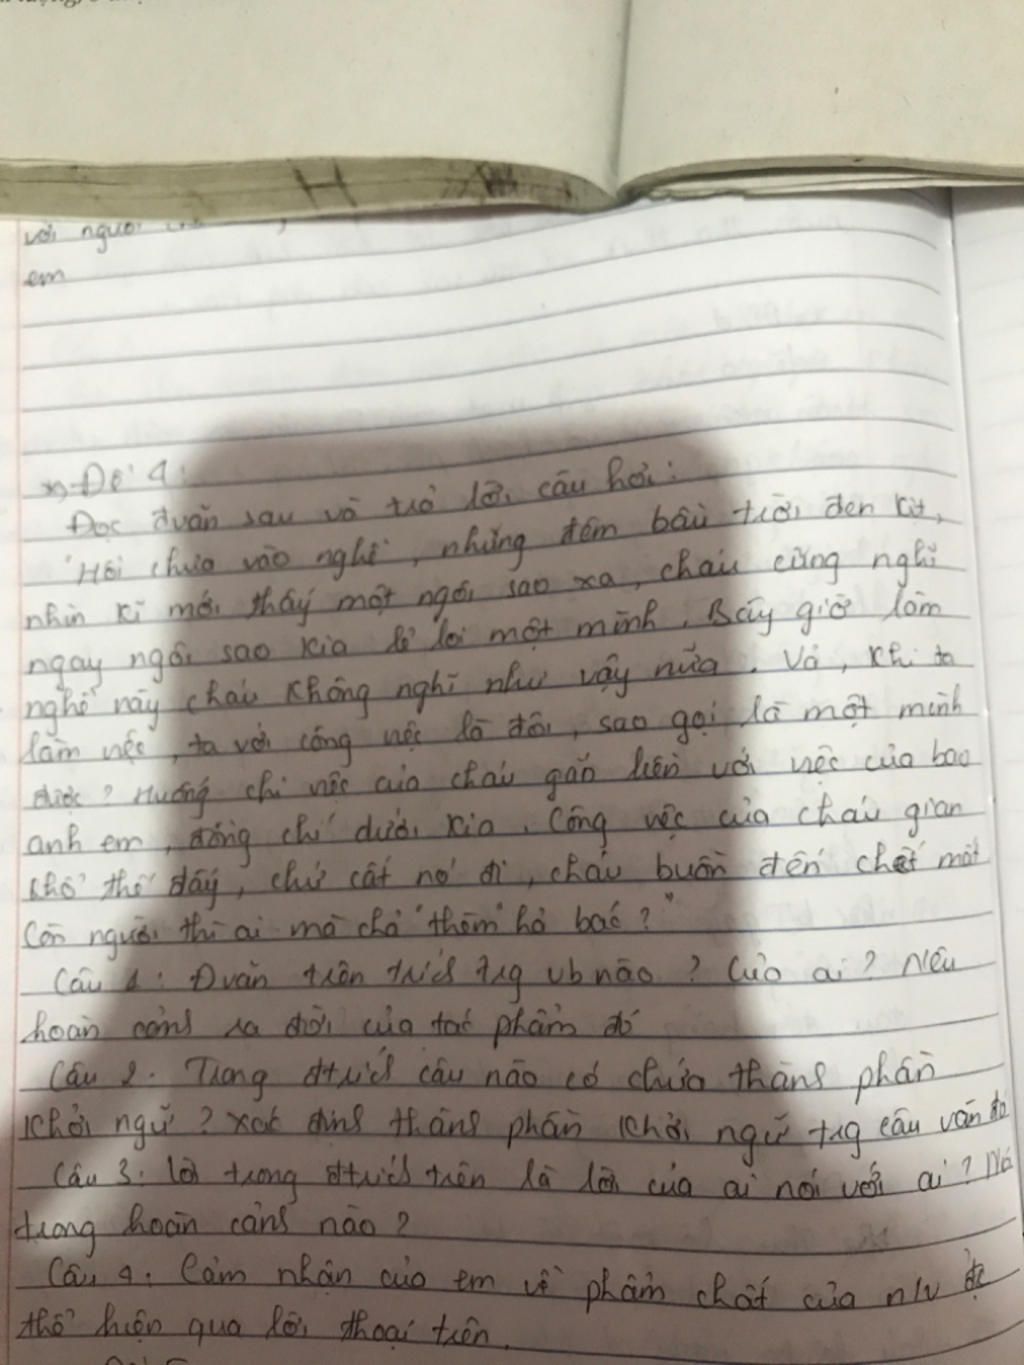 với người
em
Đề 4:
Đọc đoạn sau và trả lời câu hỏi:
"Hồi chưa vào nghề, những đêm bầu trời đen kịt,
nhìn kĩ mới thấy một ngôi sao xa, cháu cũng nghĩ
ngay ngôi sao kia lẻ loi một mình. Bây giờ làm
nghề này cháu không nghĩ như vậy nữa. Và, khi ta
làm việc, ta với công việc là đôi, sao gọi là một mình
được? Huống chi việc của cháu gắn liền với việc của bao
anh em, đồng chí dưới kia. Công việc của cháu gian
khổ thế đấy, chứ cất nó đi, cháu buồn đến chết mất
Còn người thì ai mà chả "thèm" hả bác?"
Câu 1: Đoạn trên trích trg vb nào? Của ai? Nêu
hoàn cảnh ra đời của tác phẩm đó
Câu 2. Trong đtrích câu nào có chứa thành phần
khởi ngữ? xác định thành phần khởi ngữ trg câu văn đó
Câu 3. Lời trong đtrích trên là lời của ai nói với ai? Nói
trong hoàn cảnh nào?
Câu 4. Cảm nhận của em về phẩm chất của n/v đc
thể hiện qua lời thoại trên.